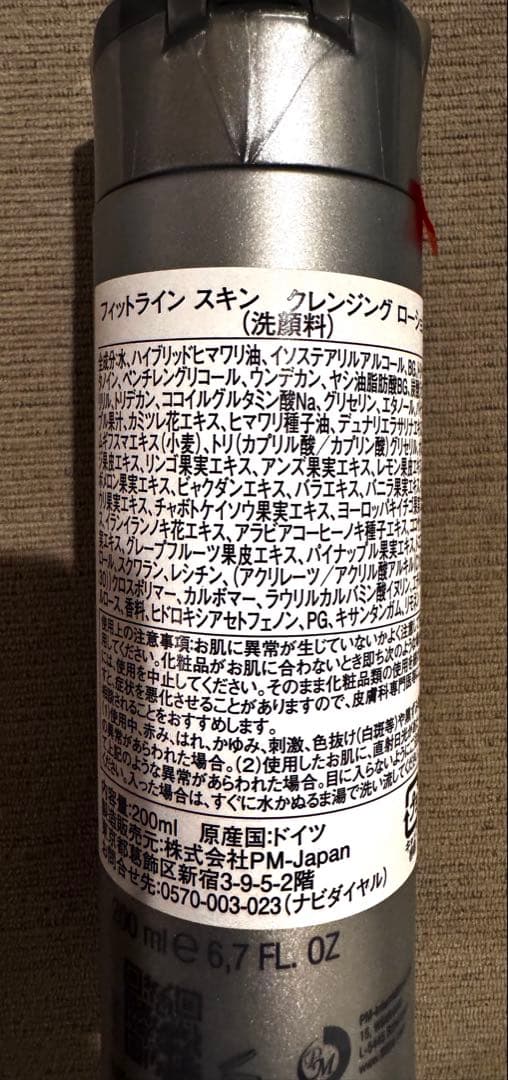 フィットライン スキン クレンジング ローショ
(洗顔料)
全成分:水、ハイブリッドヒマワリ油、イソステアリルアルコール、BG、
タノイン、ペンチレングリコール、ウンデカン、ヤシ油脂肪酸BG、
リル、トリデカン、ココイルグルタミン酸Na、グリセリン、エタノール、
プル果汁、カミツレ花エキス、ヒマワリ種子油、デュナリエラサリナエキ
ムギフスマエキス(小麦)、トリ(カプリル酸/カプリン酸)グリセリル、
ジ果皮エキス、リンゴ果実エキス、アンズ果実エキス、レモン果皮エキ
ポメロン果実エキス、ビャクダンエキス、バラエキス、バニラ果実エ
ウリ果実エキス、チャボトケイソウ果実エキス、ヨーロッパキイチゴ果実
ス、イランイランノキ花エキス、アラビアコーヒーノキ種子エキス、
実エキス、グレープフルーツ果皮エキス、パイナップル果実エキス、
ロール、スクワラン、レシチン、(アクリレーツ/アクリル酸アルキル
30))クロスポリマー、カルボマー、ラウリルカルバミン酸イヌリン、
ルロース、香料、ヒドロキシアセトフェノン、PG、キサンタンガム、リモネ
使用上の注意事項:お肌に異常が生じていないかよく注意し
用してください。化粧品がお肌に合わないとき即ち次のような
には、使用を中止してください。そのまま化粧品類の使用を
すと、症状を悪化させることがありますので、皮膚科専門医
相談されることをおすすめします。
(1)使用中、赤み、はれ、かゆみ、刺激、色抜け(白斑等)や黒
の異常があらわれた場合。(2)使用したお肌に、直射日光が
て上記のような異常があらわれた場合。目に入らないように
ください。入った場合は、すぐに水かぬるま湯で洗い流してくだ
内容量:200ml 原産国:ドイツ
製造販売元:株式会社PM-Japan
東京都葛飾区新宿3-9-5-2階
お問合せ先:0570-003-023(ナビダイヤル)
200 ml e 6,7 FL. OZ
PM-Internat
PM